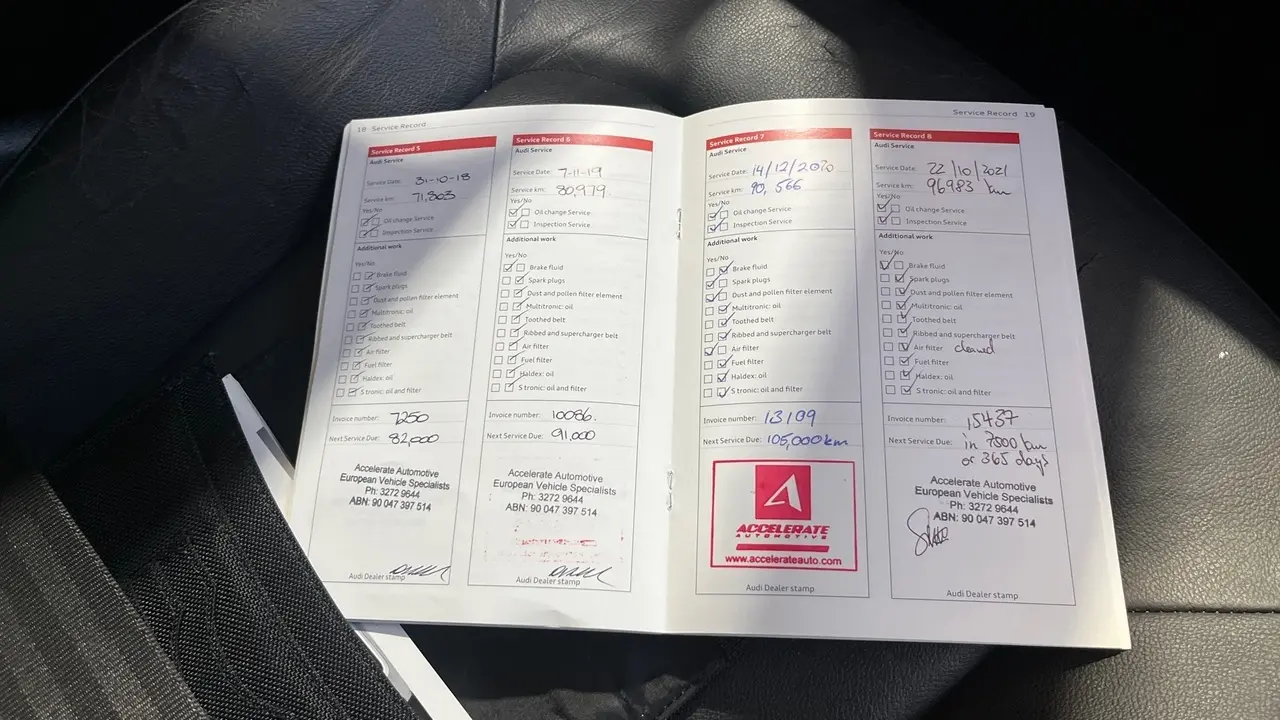 18 Service Record
Service Record 5
Audi Service
Service Date: 31-10-18
Service km: 71,803
Yes/No
Oil change Service
Inspection Service
Additional work
Yes/No
Brake fluid
Spark plugs
Dust and pollen filter element
Multitronic: oil
Toothed belt
Ribbed and supercharger belt
Air filter
Fuel filter
Haldex: oil
S tronic: oil and filter
Invoice number: 7250
Next Service Due: 82,000
Accelerate Automotive
European Vehicle Specialists
Ph: 3272 9644
ABN: 90 047 397 514
Audi Dealer stamp
Service Record 6
Audi Service
Service Date: 7-11-19
Service km: 80,979
Yes/No
Oil change Service
Inspection Service
Additional work
Yes/No
Brake fluid
Spark plugs
Dust and pollen filter element
Multitronic: oil
Toothed belt
Ribbed and supercharger belt
Air filter
Fuel filter
Haldex: oil
S tronic: oil and filter
Invoice number: 10086.
Next Service Due: 91,000
Accelerate Automotive
European Vehicle Specialists
Ph: 3272 9644
ABN: 90 047 397 514
Audi Dealer stamp
Service Record 19
Service Record 7
Audi Service
Service Date: 14/12/2020
Service km: 90,566
Yes/No
Oil change Service
Inspection Service
Additional work
Yes/No
Brake fluid
Spark plugs
Dust and pollen filter element
Multitronic: oil
Toothed belt
Ribbed and supercharger belt
Air filter
Fuel filter
Haldex: oil
S tronic: oil and filter
Invoice number:
Next Service Due: 105,000km
ACCELERATE
AUTOMOTIVE
www.accelerateauto.com
Audi Dealer stamp
Service Record 8
Audi Service
Service Date: 22/10/2021
Service km: 96983 km
Yes/No
Oil change Service
Inspection Service
Additional work
Yes/No
Brake fluid
Spark plugs
Dust and pollen filter element
Multitronic: oil
Toothed belt
Ribbed and supercharger belt
Air filter cleaned
Fuel filter
Haldex: oil
S tronic: oil and filter
Invoice number: 15437
Next Service Due: in 7500 km
or 365 days
Accelerate Automotive
European Vehicle Specialists
Ph: 3272 9644
ABN: 90 047 397 514
Audi Dealer stamp